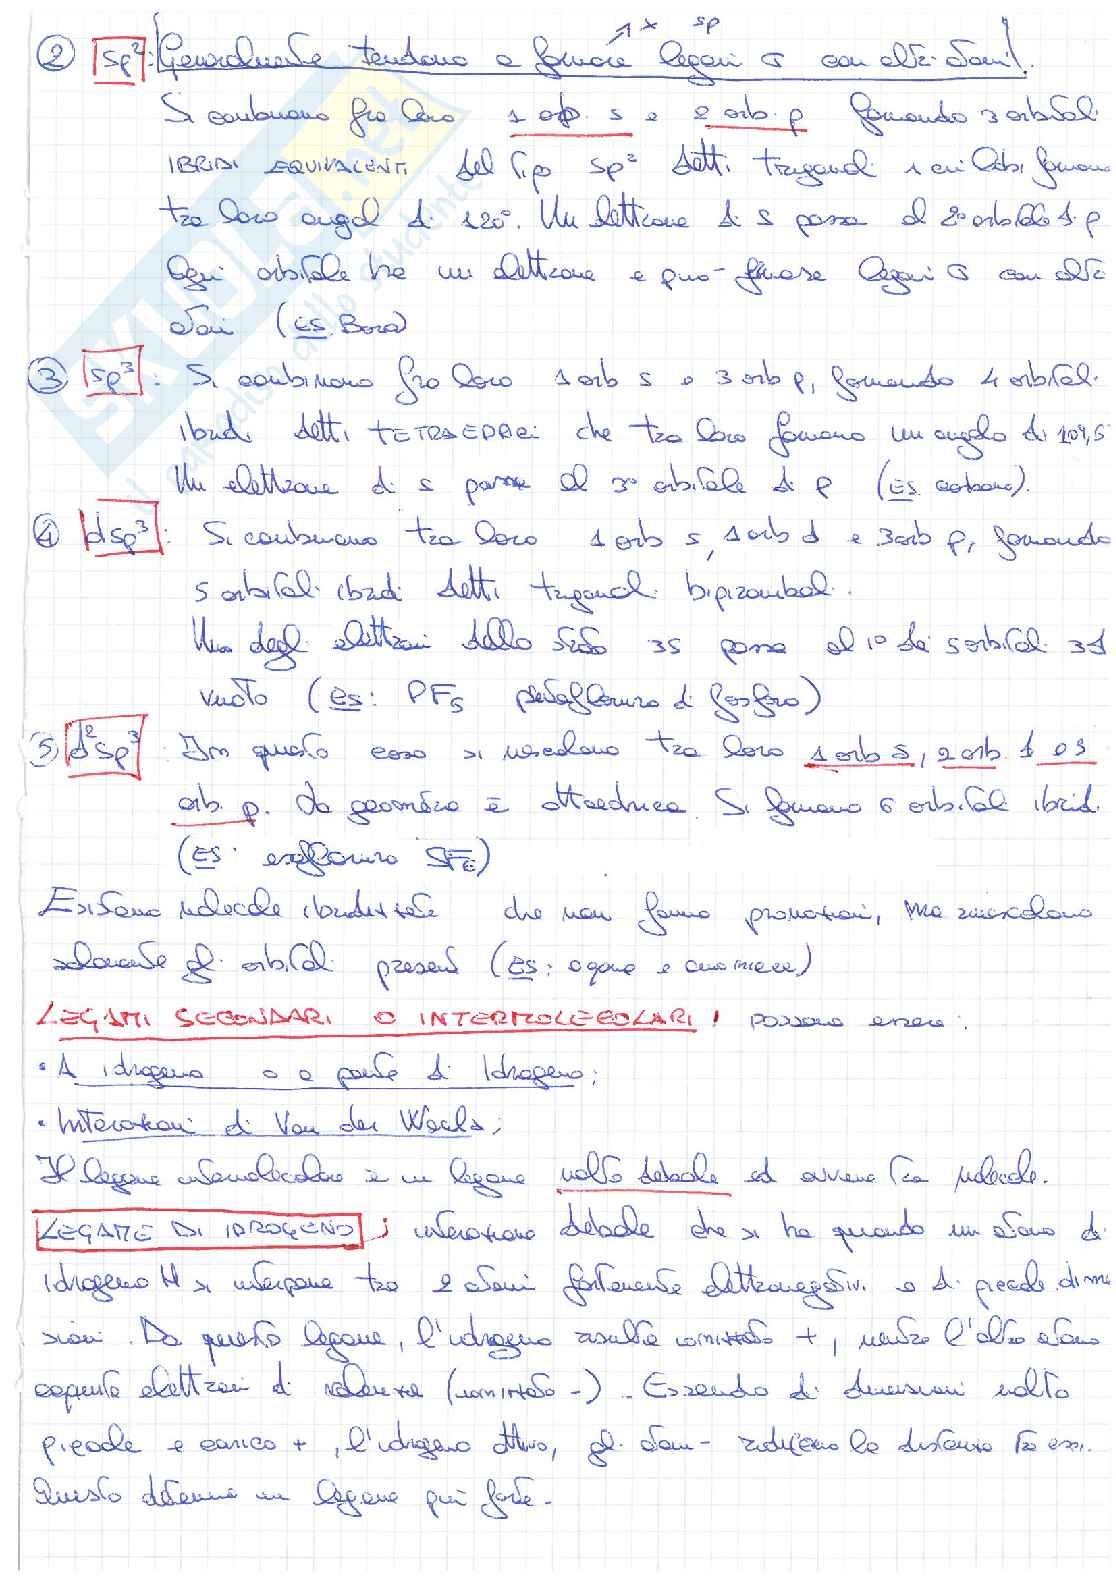 ↗ x sp
② sp²: Generalmente tendono a formare legami σ con altri atomi!
Si combinano fra loro 1 orb. s e 2 orb. p formando 3 orbitali
IBRIDI EQUIVALENTI del tipo sp² detti trigonali i cui lobi formano
tra loro angoli di 120°. Un elettrone di s passa al 2° orbitale di p
Ogni orbitale ha un elettrone e può formare legami σ con altri
atomi (ES. Boro)
③ sp³: Si combinano fra loro 1 orb s e 3 orb p, formando 4 orbitali
ibridi detti TETRAEDRICI che tra loro formano un angolo di 109,5
Un elettrone di s passa al 3° orbitale di p (ES. carbonio).
④ dsp³: Si combinano tra loro 1 orb s, 1 orb d e 3 orb p, formando
5 orbitali ibridi detti trigonali bipiramidali.
Uno degli elettroni dello stato 3s passa al 1° dei 5 orbitali 3d
vuoto (ES: PF₅ pentafloruro di fosforo)
5) d²sp³: In questo caso si mescolano tra loro 1 orb s, 2 orb d e 3
orb. p. La geometria è ottaedrica. Si formano 6 orbitali ibridi.
(ES: esafloruro SF₆)
Esistono molecole ibridizzate che non fanno promozioni, ma mescolano
solamente gli orbitali presenti (ES: acqua e ammoniaca)
LEGAMI SECONDARI O INTERMOLECOLARI: possono essere:
• A idrogeno o a ponte di Idrogeno;
• Interazioni di Van der Waals;
Il legame intermolecolare è un legame molto debole ed avviene tra molecole.
LEGAME DI IDROGENO: interazione debole che si ha quando un atomo di
idrogeno H si interpone tra 2 atomi fortemente elettronegativi e di piccole dimen
sioni. Da questo legame, l'idrogeno risulta +, mentre l'altro atomo
elettroni di valenza (-). Essendo di dimensioni molto
piccole e carico +, l'idrogeno attira gli atomi - riducendo la distanza tra essi.
Questo determina un legame più forte.
SKUOLA.net
il paradiso dello studente